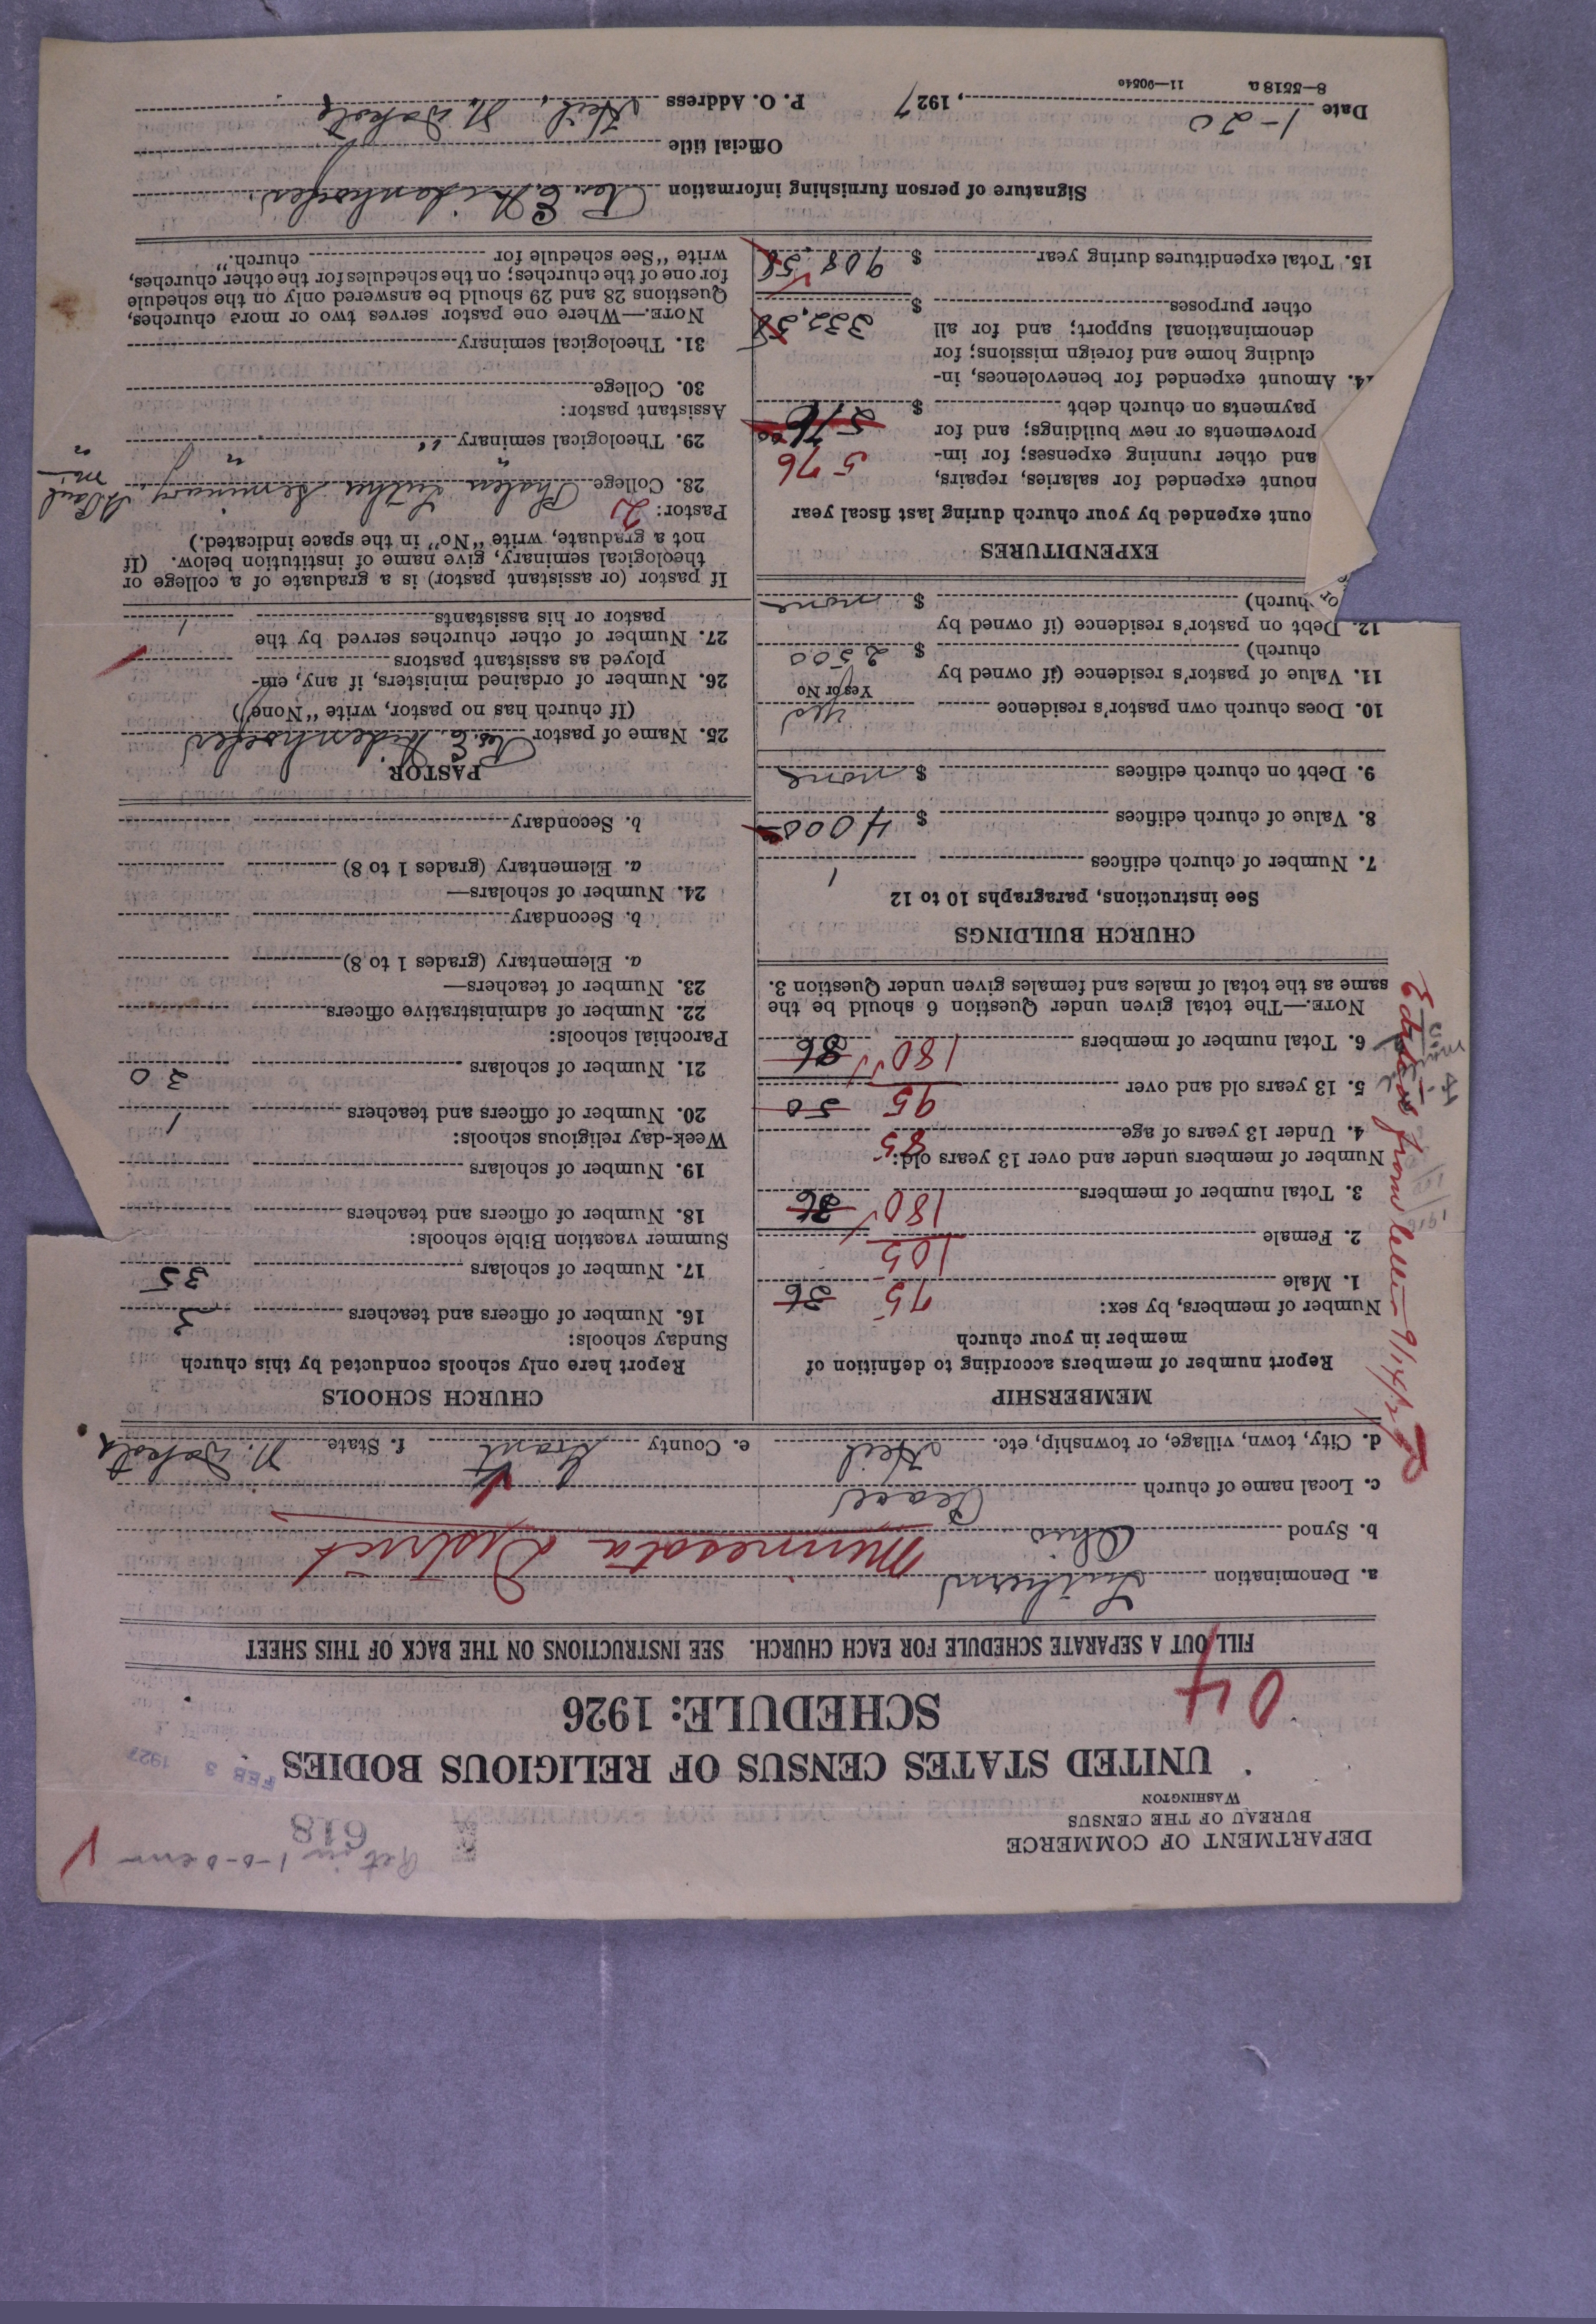 DEPARTMENT OF COMMERCE
BUREAU OF THE CENSUS
WASHINGTON
618
FEB 3 1927
UNITED STATES CENSUS OF RELIGIOUS BODIES
SCHEDULE: 1926
04
FILL OUT A SEPARATE SCHEDULE FOR EACH CHURCH. SEE INSTRUCTIONS ON THE BACK OF THIS SHEET
a. Denomination Lutheran
Minnesota District
b. Synod Ohio
c. Local name of church Peace
d. City, town, village, or township, etc. Heil e. County Grant f. State N. Dakota
MEMBERSHIP
Report number of members according to definition of
member in your church
Number of members, by sex:
1. Male 75 36
2. Female 105
3. Total number of members 180 36
Number of members under and over 13 years old:
4. Under 13 years of age 85
5. 13 years old and over 95 50
6. Total number of members 180 86
NOTE.—The total given under Question 6 should be the
same as the total of males and females given under Question 3.
CHURCH BUILDINGS
See instructions, paragraphs 10 to 12
7. Number of church edifices 1
8. Value of church edifices $ 4000
9. Debt on church edifices $ none
10. Does church own pastor's residence yes
Yes or No
11. Value of pastor's residence (if owned by
church) $ 2500
12. Debt on pastor's residence (if owned by
church) $ none
EXPENDITURES
ount expended by your church during last fiscal year
nount expended for salaries, repairs,
and other running expenses; for im-
provements or new buildings; and for
payments on church debt $ 576 576
14. Amount expended for benevolences, in-
cluding home and foreign missions; for
denominational support; and for all
other purposes $ 332.58
15. Total expenditures during year $ 908.58
CHURCH SCHOOLS
Report here only schools conducted by this church
Sunday schools:
16. Number of officers and teachers 3
17. Number of scholars 35
Summer vacation Bible schools:
18. Number of officers and teachers
19. Number of scholars
Week-day religious schools:
20. Number of officers and teachers 1
21. Number of scholars 20
Parochial schools:
22. Number of administrative officers
23. Number of teachers—
a. Elementary (grades 1 to 8)
b. Secondary
24. Number of scholars—
a. Elementary (grades 1 to 8)
b. Secondary
PASTOR
25. Name of pastor Rev. E.
(If church has no pastor, write "None")
26. Number of ordained ministers, if any, em-
ployed as assistant pastors
27. Number of other churches served by the
pastor or his assistants 1
If pastor (or assistant pastor) is a graduate of a college or
theological seminary, give name of institution below. (If
not a graduate, write "No" in the space indicated.)
Pastor: 2
28. College Phalen Luther Seminary, St Paul Min
29. Theological seminary " " " "
Assistant pastor:
30. College
31. Theological seminary
NOTE.—Where one pastor serves two or more churches,
Questions 28 and 29 should be answered only on the schedule
for one of the churches; on the schedules for the other churches,
write "See schedule for church."
Signature of person furnishing information Rev. E.
Official title
Date 1-20, 1927 P. O. Address Heil, N. Dakota
8—5518 a 11—9054